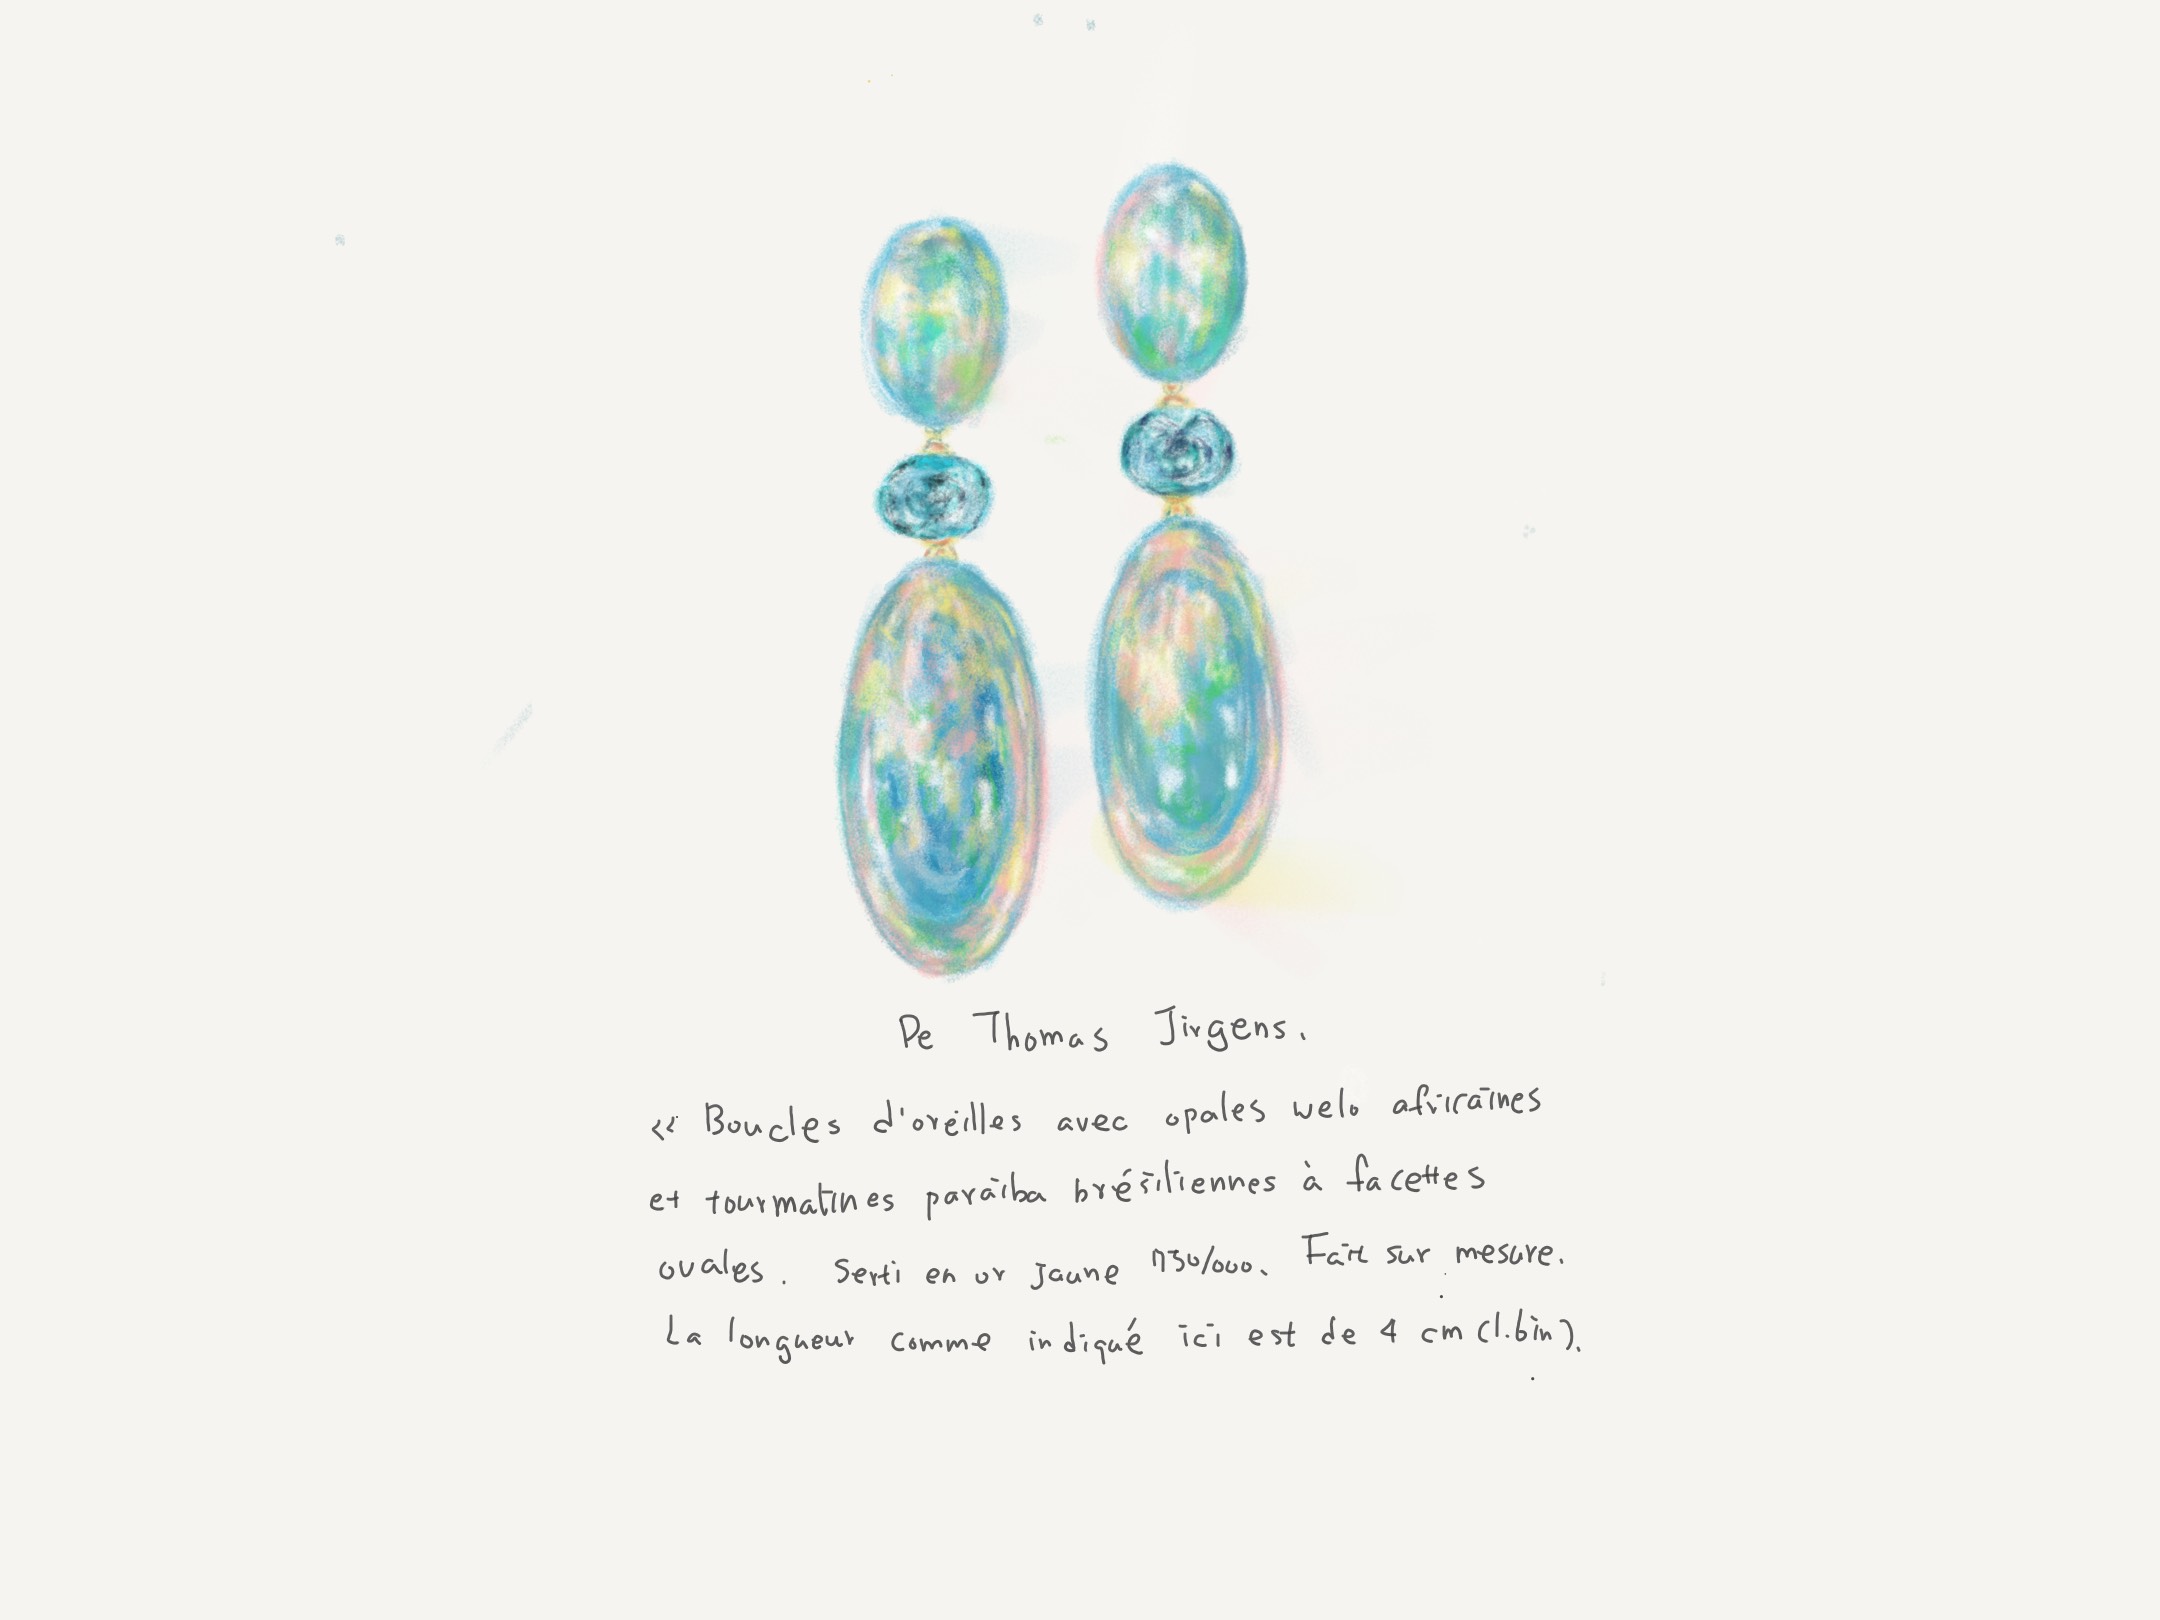 De Thomas Jirgens.
« Boucles d'oreilles avec opales welo africaines
et tourmalines paraiba brésiliennes à facettes
ovales. Serti en or jaune 750/000. Fait sur mesure.
La longueur comme indiqué ici est de 4 cm (1.6in).